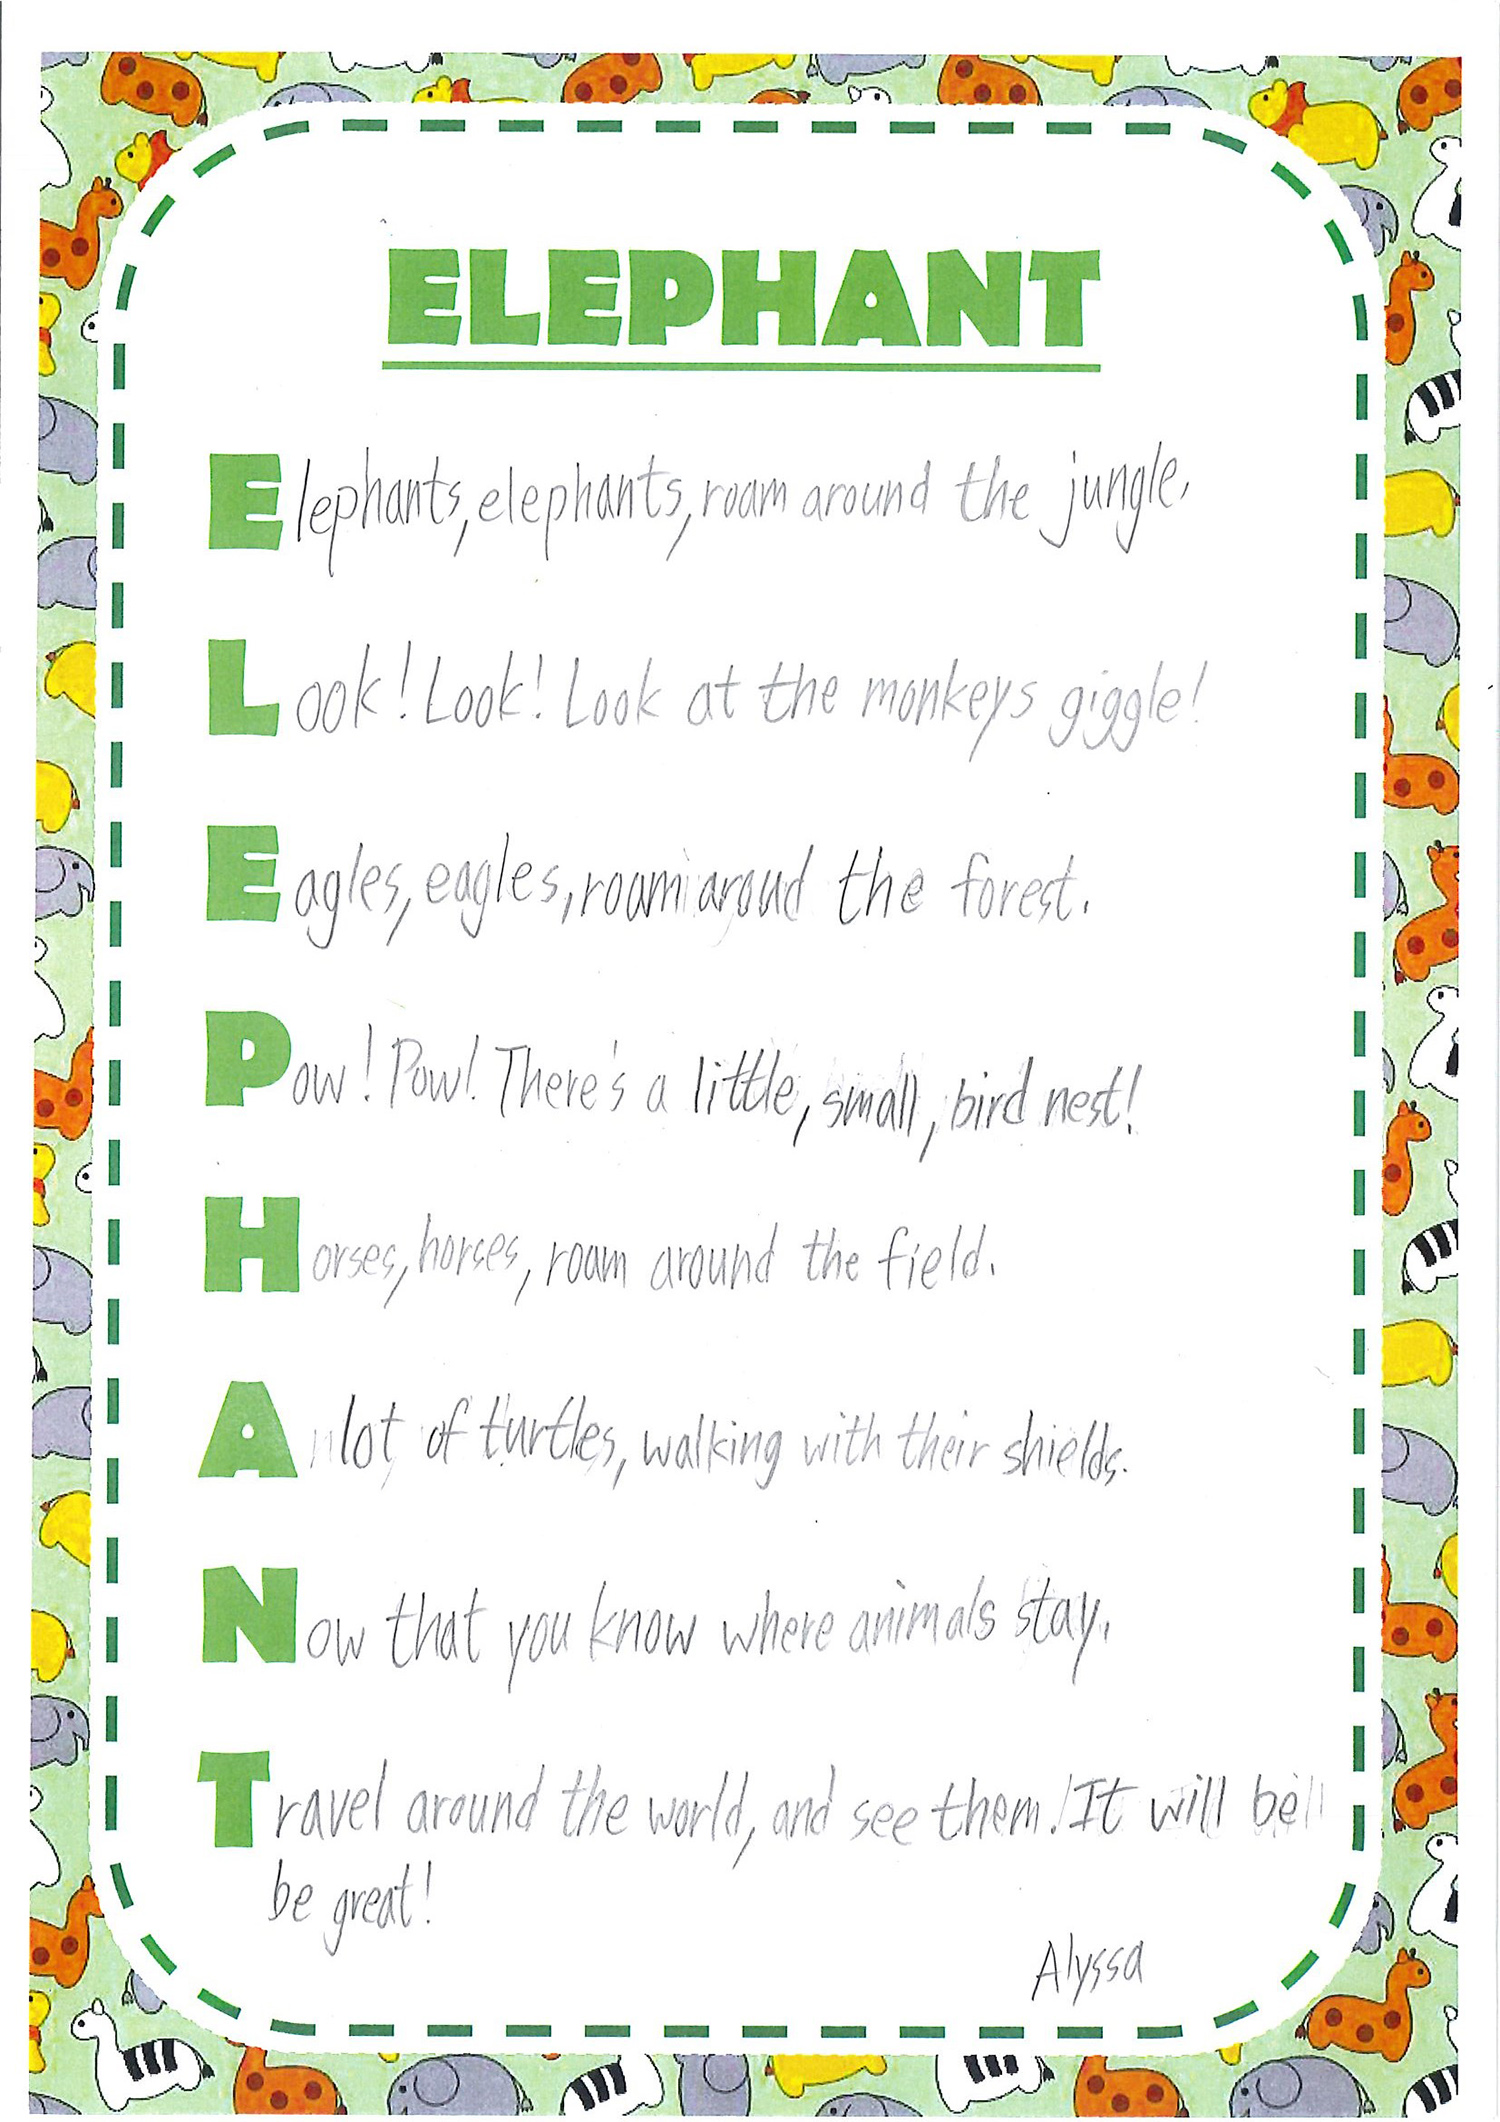 ELEPHANT
Elephants, elephants, roam around the jungle.
Look! Look! Look at the monkeys giggle!
Eagles, eagles, roam aroud the forest.
Pow! Pow! There's a little, small, bird nest!
Horses, horses, roam around the field.
A lot of turtles, walking with their shields.
Now that you know where animals stay.
Travel around the world, and see them! It will be
be great!
Alyssa